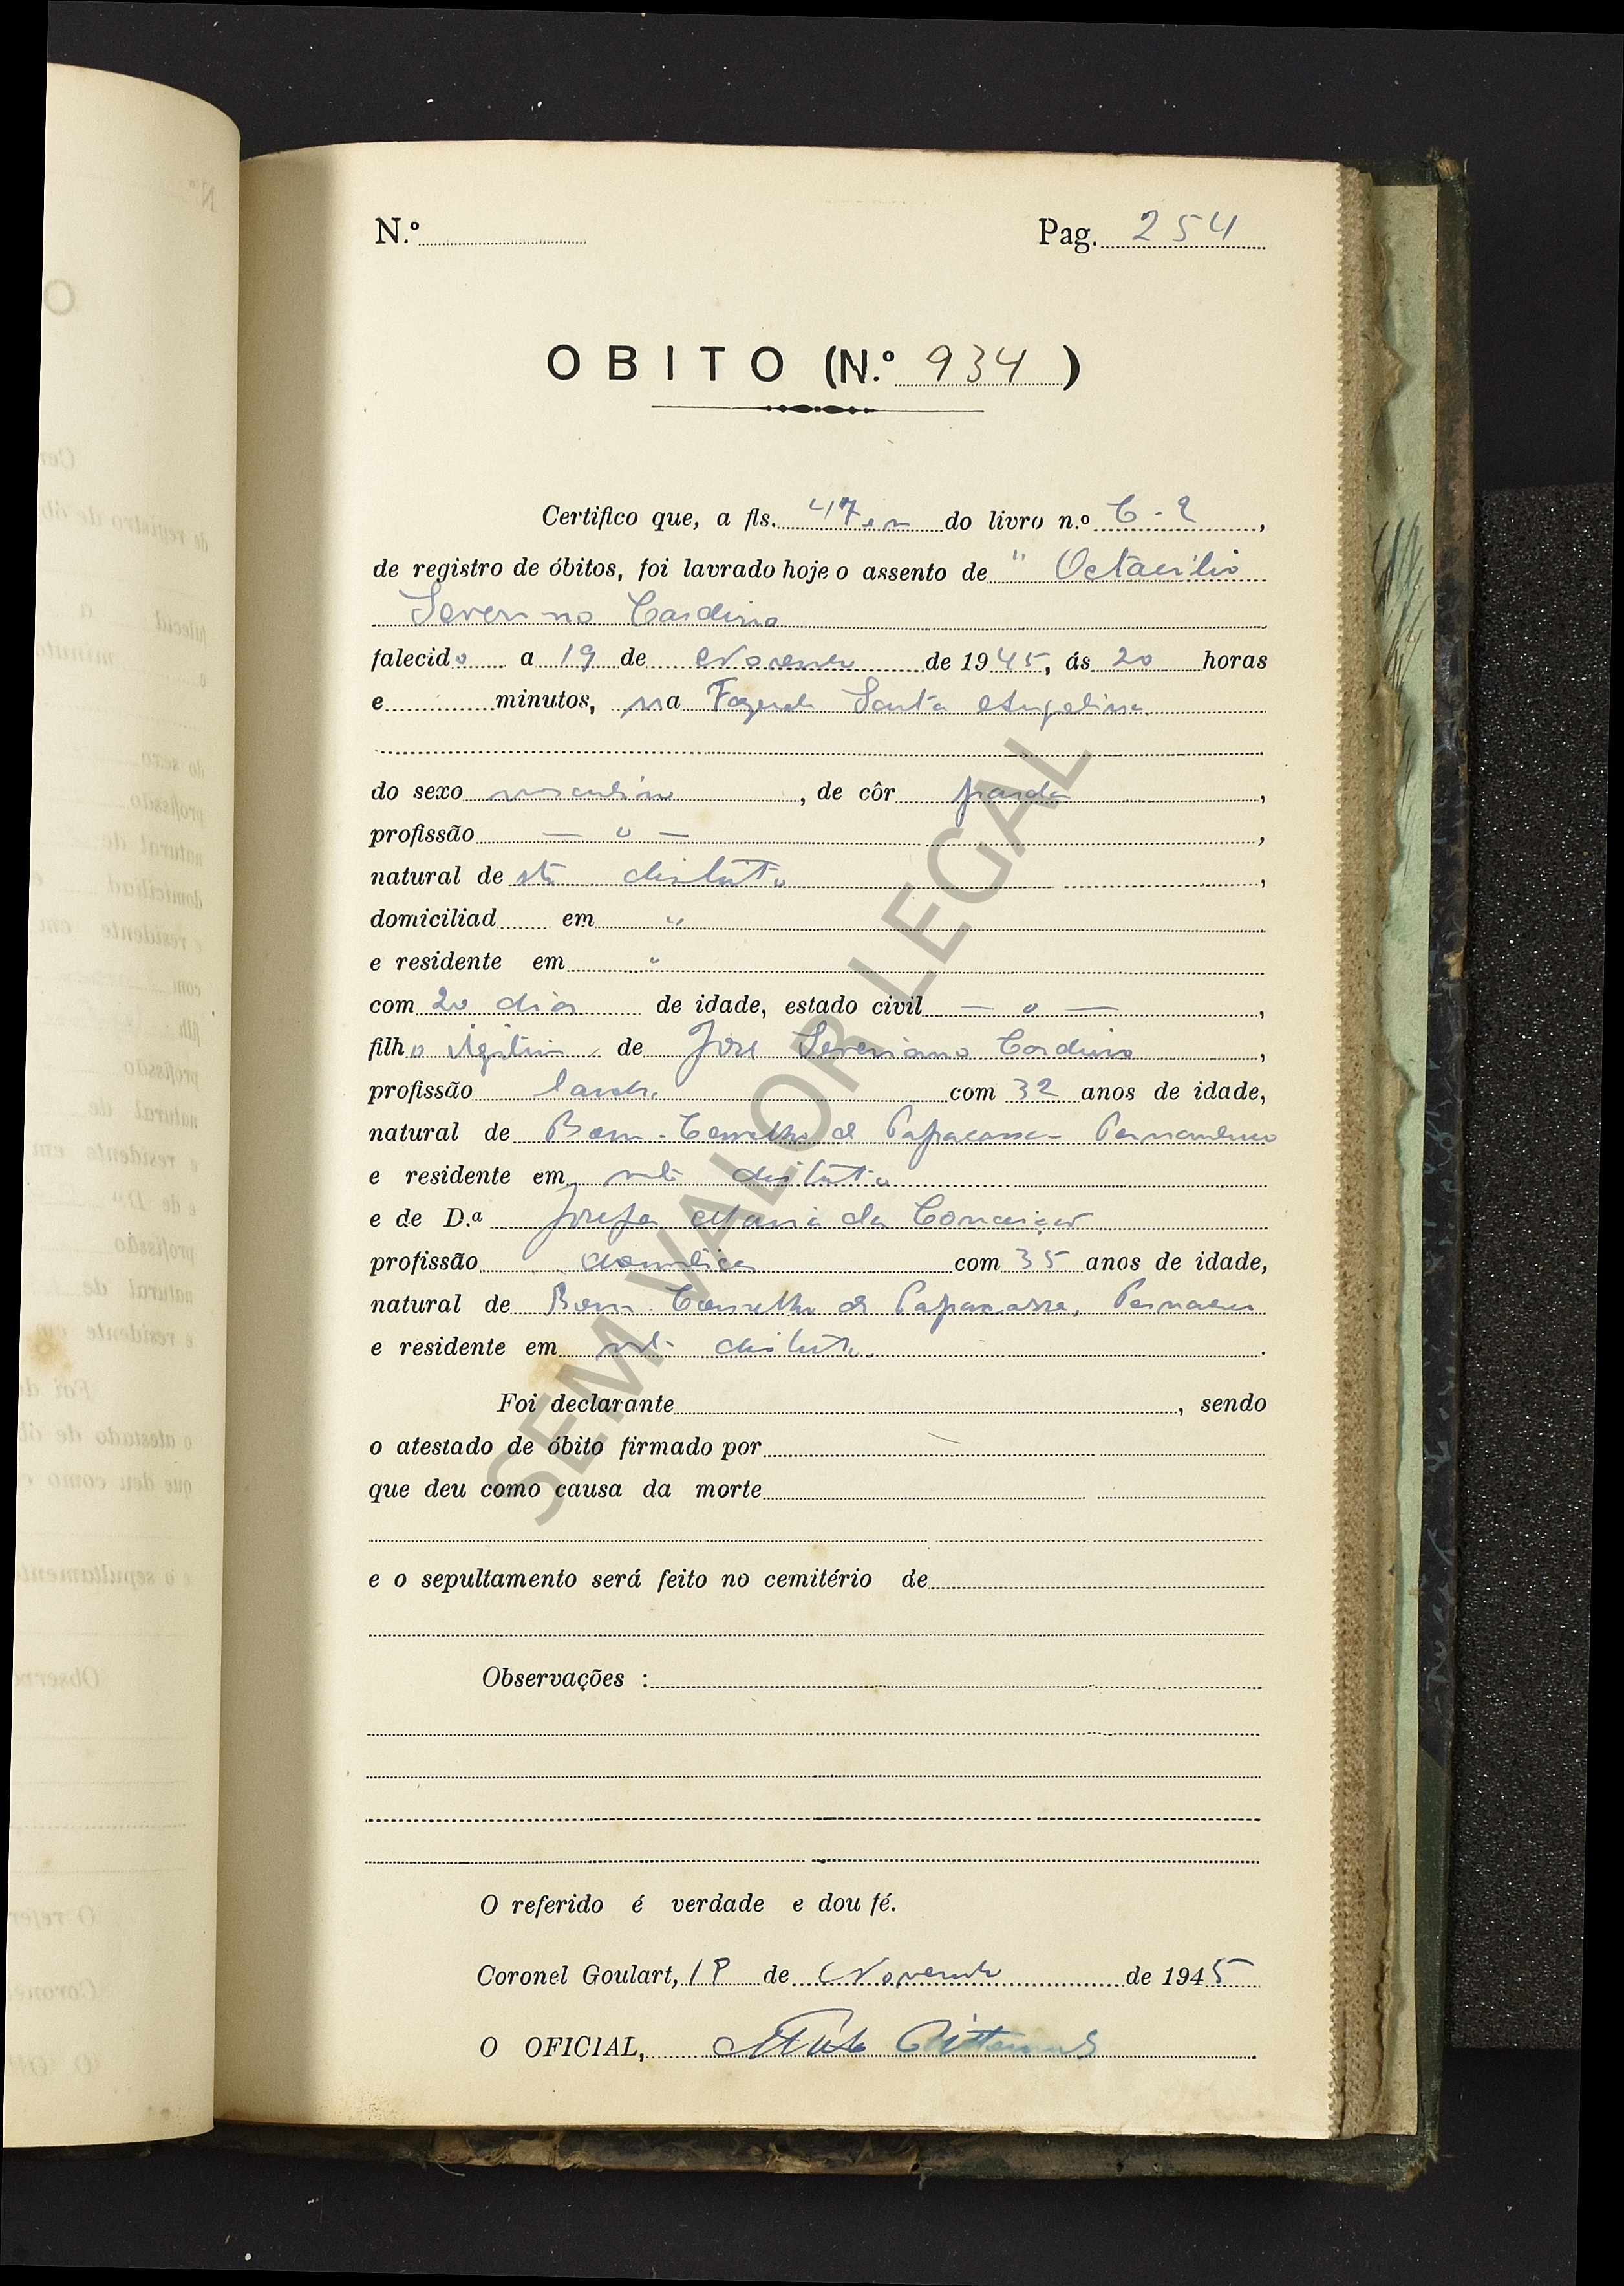 N.º Pag. 254
OBITO (N.º 934 )
Certifico que, a fls. 47 do livro n.º C-2,
de registro de óbitos, foi lavrado hoje o assento de " Octacilio
Severino Cordeiro
falecido a 19 de Novembro de 1945, ás 20 horas
e minutos, na Fazenda Santa Angelina
do sexo masculino, de côr parda,
profissão — o —,
natural de ste distrito,
domiciliad em "
e residente em "
com 20 dias de idade, estado civil — o —,
filho legitimo de José Severiano Cordeiro,
profissão lavrd. com 32 anos de idade,
natural de Bom-Conselho de Papacassa - Pernambuco
e residente em distrito
e de D.ª Josefa Maria da Conceição
profissão domestica com 35 anos de idade,
natural de Bom-Conselho de Papacassa,
e residente em distrito.
Foi declarante, sendo
o atestado de óbito firmado por
que deu como causa da morte
e o sepultamento será feito no cemitério de
Observações :
O referido é verdade e dou fé.
Coronel Goulart, de Novembro de 1945
O OFICIAL,
SEM VALOR LEGAL